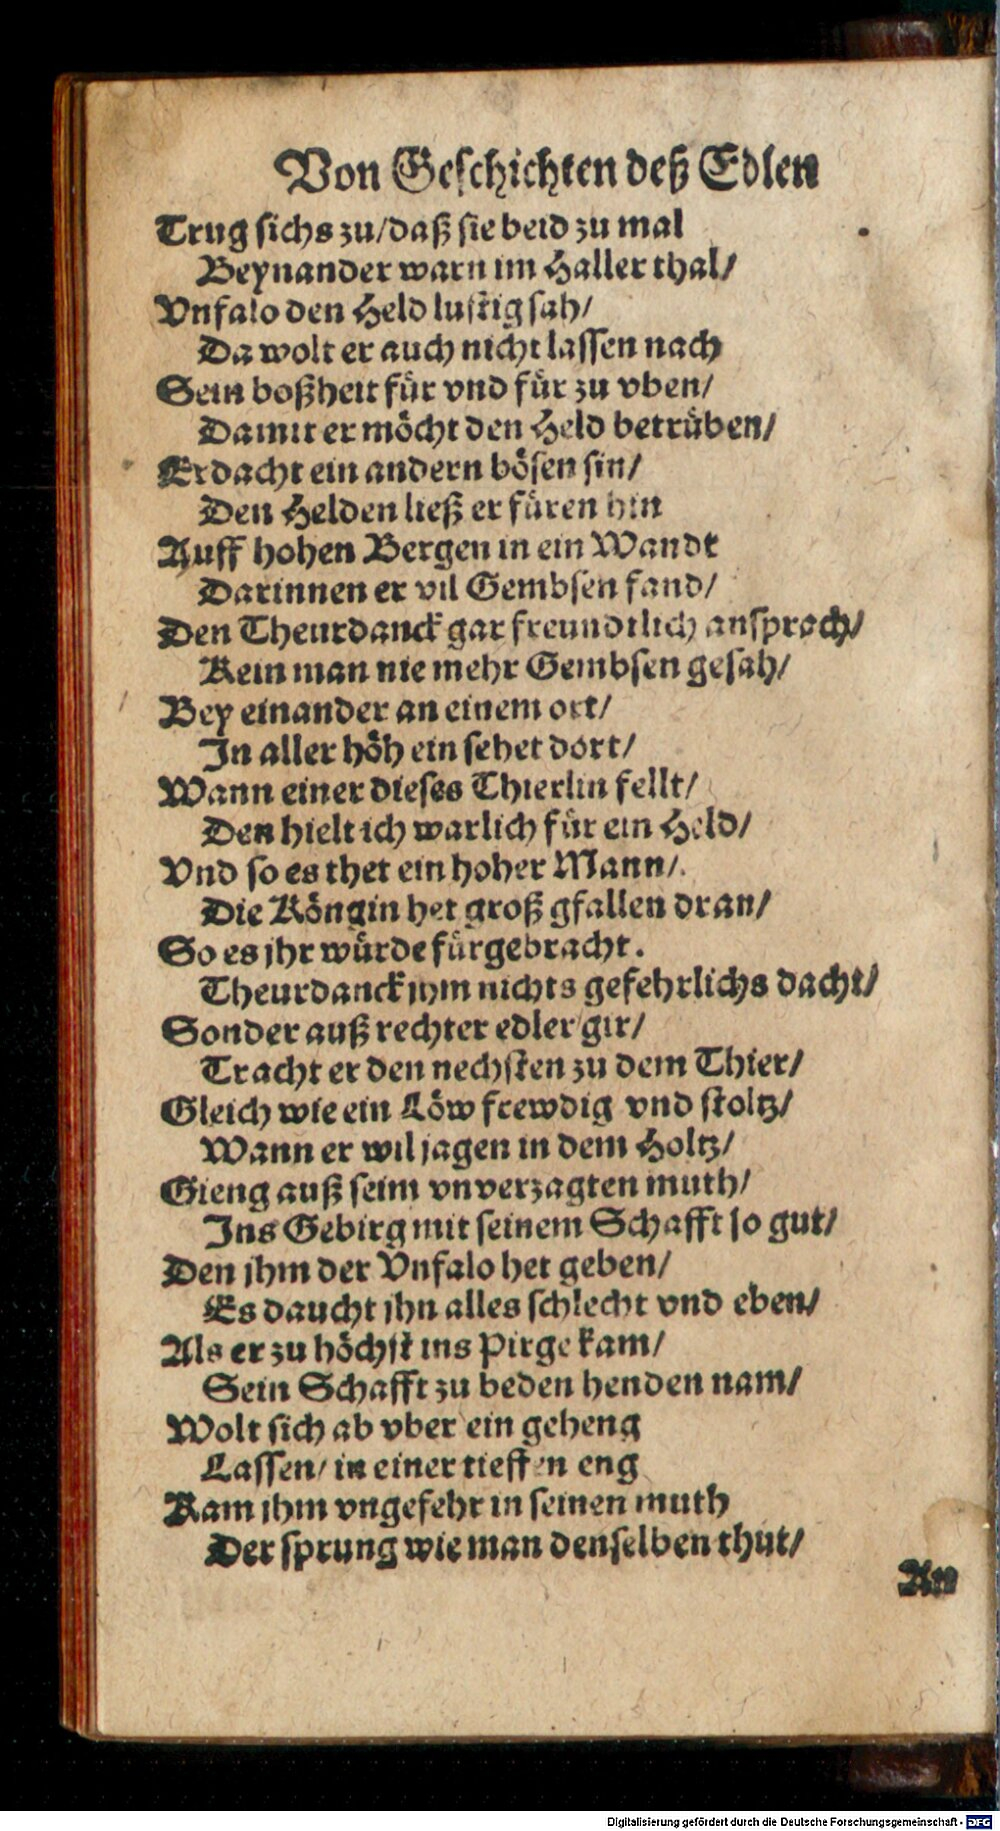 Von Geschichten deß Edlen
Trug sichs zu/daß sie beid zu mal
Beynander warn im Haller thal/
Vnfalo den Held lustig sah/
Da wolt er auch nicht lassen nach
Sein boßheit für vnd für zu vben/
Damit er möcht den Held betrüben/
Erdacht ein andern bösen sin/
Den Helden ließ er füren hin
Auff hohen Bergen in ein Wandt
Darinnen er vil Gembsen fand/
Den Theurdanck gar freundtlich ansprach/
Kein man nie mehr Gembsen gesah/
Bey einander an einem ort/
In aller höh ein sehet dort/
Wann einer dieses Thierlin fellt/
Den hielt ich warlich für ein Held/
Vnd so es thet ein hoher Mann/
Die Köngin het groß gfallen dran/
So es jhr würde fürgebracht.
Theurdanck jhm nichts gefehrlichs dacht/
Sonder auß rechter edler gir/
Tracht er den nechsten zu dem Thier/
Gleich wie ein Löw frewdig vnd stoltz/
Wann er wil jagen in dem Holtz/
Gieng auß seim vnverzagten muth/
Ins Gebirg mit seinem Schafft so gut/
Den jhm der Vnfalo het geben/
Es daucht jhn alles schlecht vnd eben/
Als er zu höchst ins Pirge kam/
Sein Schafft zu beden henden nam/
Wolt sich ab vber ein geheng
Lassen/ in einer tieffen eng
Kam jhm vngefehr in seinen muth
Der sprung wie man denselben thut/
An
Digitalisierung gefördert durch die Deutsche Forschungsgemeinschaft - DFG